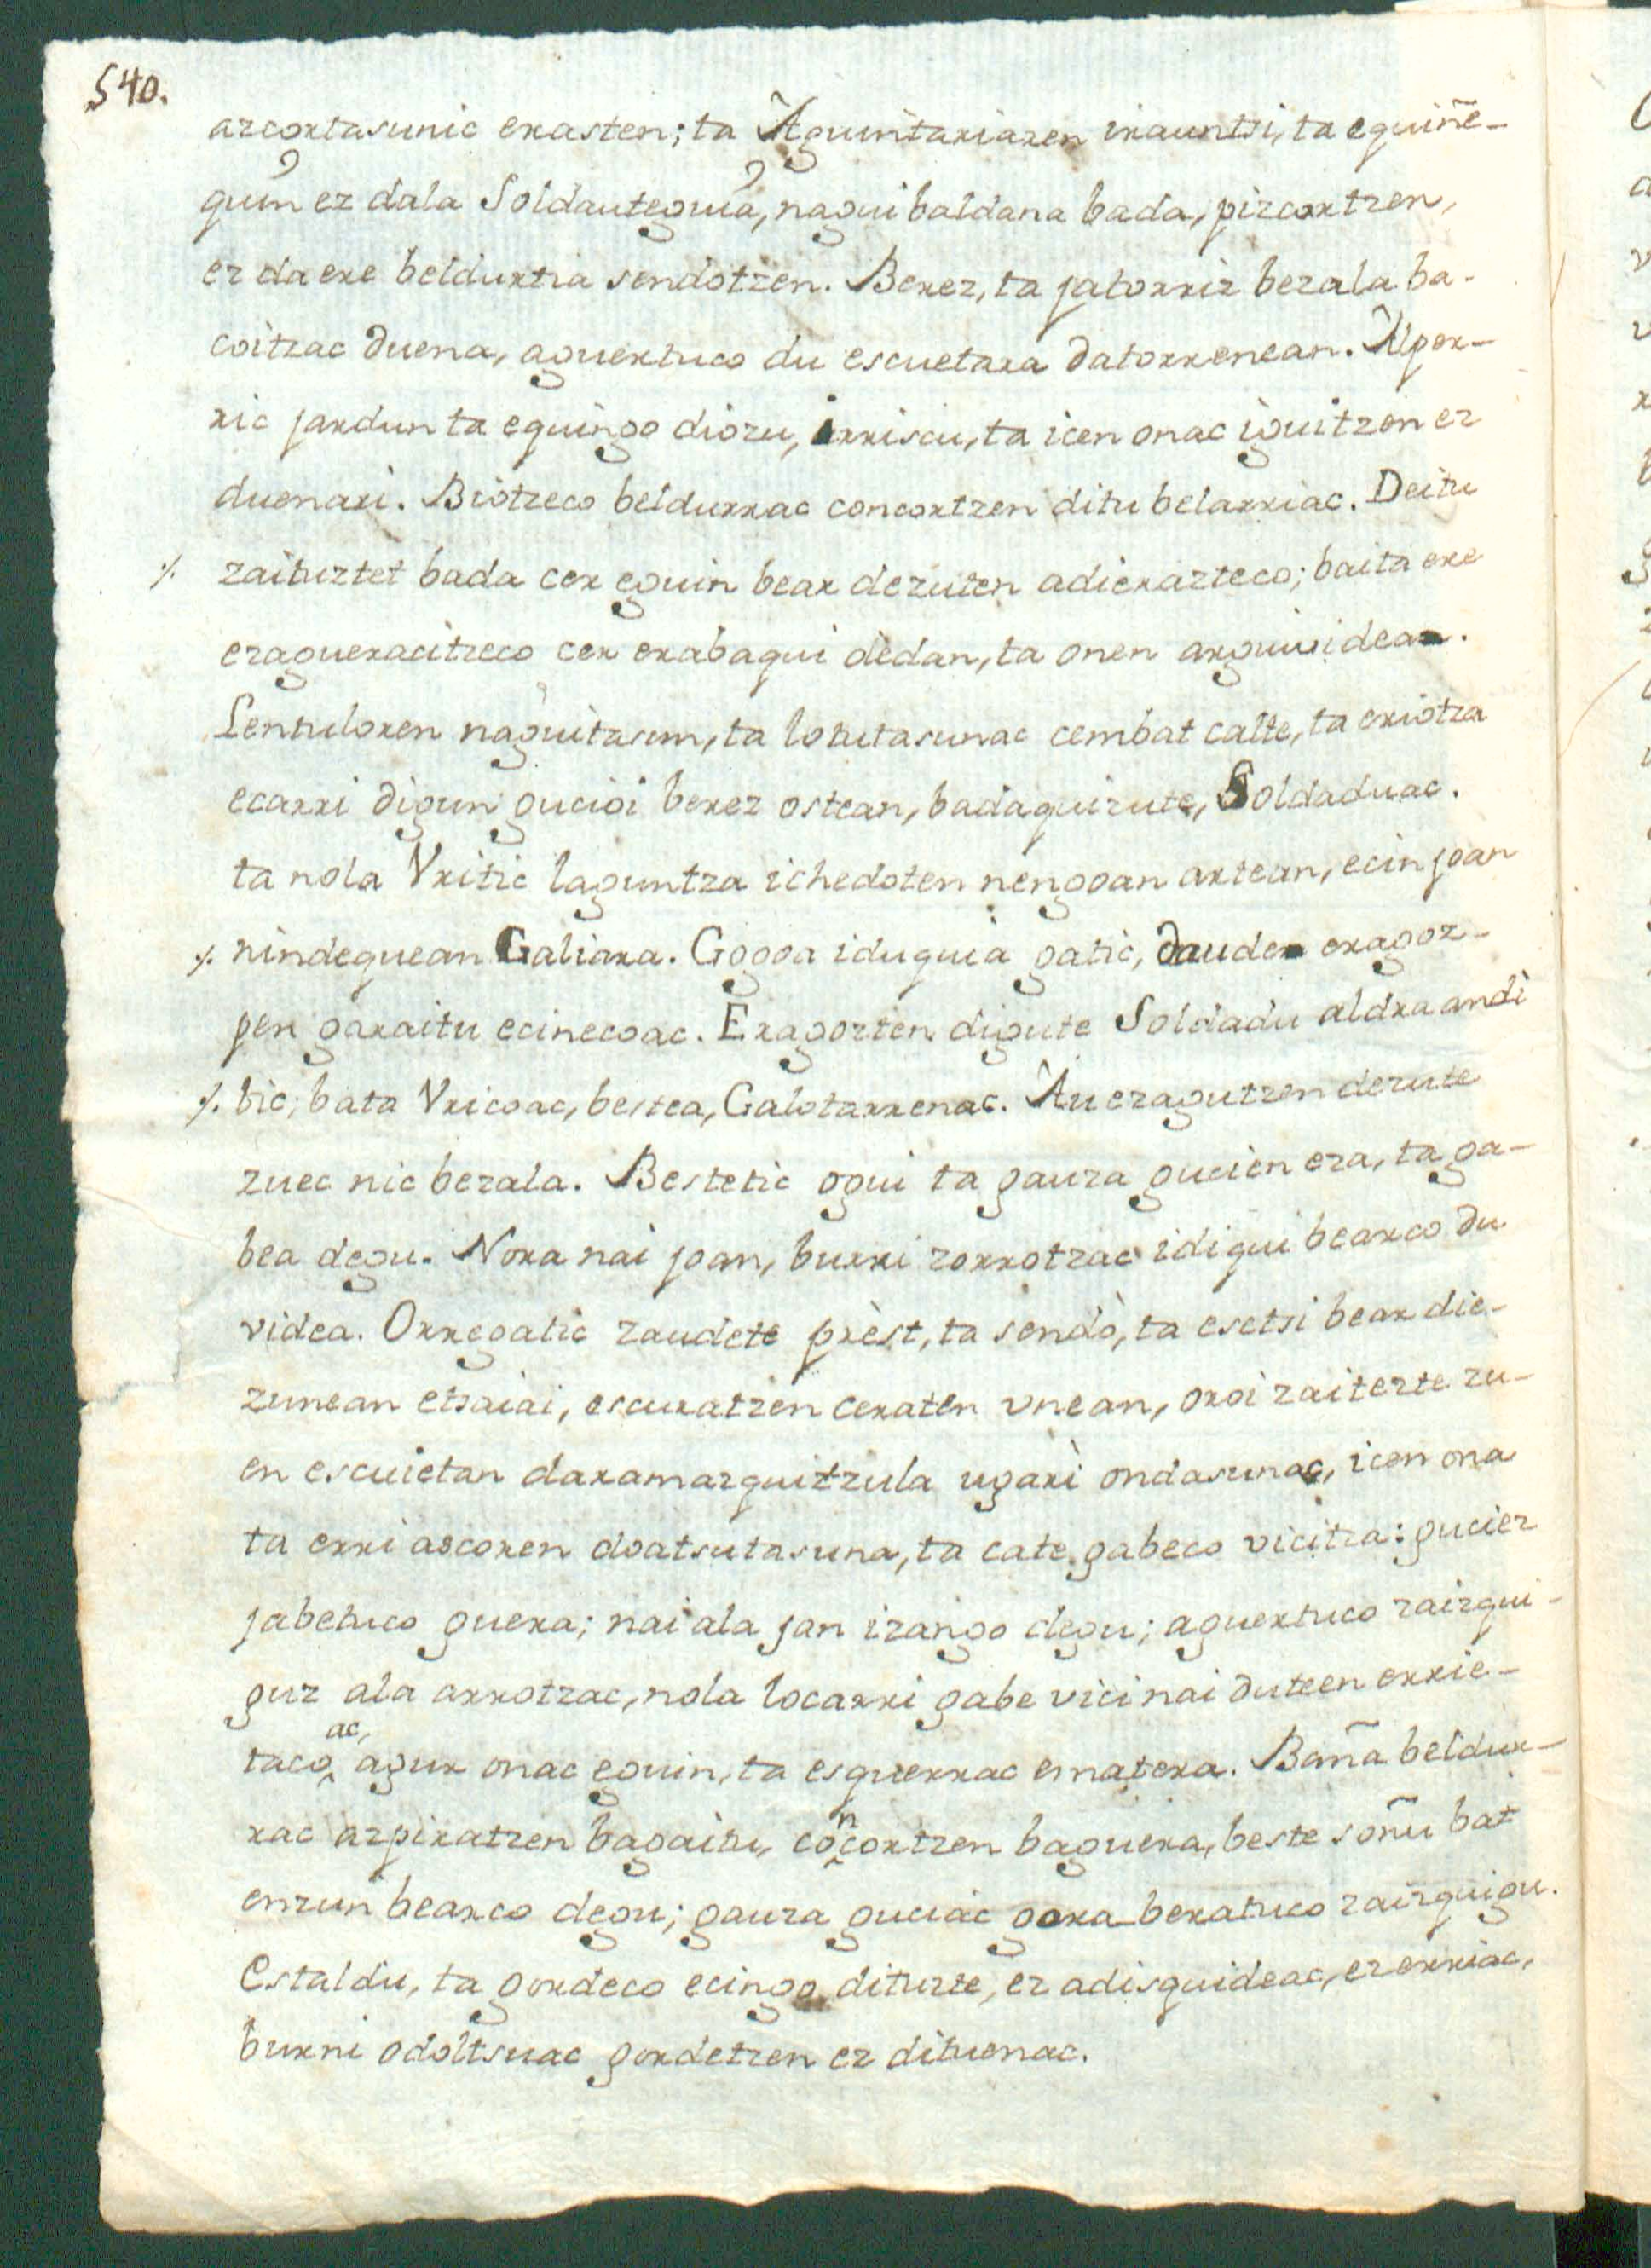 540.
azcortasunic erasten; ta Aguintariaren irauntsi, ta eguiñe-
quin ez dala Soldauteguia, nagui baldana bada, pizcortzen,
ez da ere beldurtia sendotzen. Berez, ta jatorriz bezala ba-
coitzac duena, aguertuco du escuetara datorrenean. Alper-
ric jardun ta eguingo diozu, irriscu, ta icen onac iguitzen ez
duenari. Biotzeco beldurrac concortzen ditu belarriac. Deitu
./. zaituztet bada cer eguin bear dezuten adierazteco; baita ere
ezagueracitzeco cer erabagui dèdan, ta onen arguividea.
Lentuloren naguitasun, ta lotutasunac cembat calte, ta eriotza
ecarri digun gucioi berez ostean, badaquizute, Soldaduac.
ta nola Vritic laguntza ichedoten nengoan artean, ecin joan
./. nindequean Galiara. Gogoa iduquia gatic, daude eragoz-
pen garaitu ecinecoac. Eragozten digute Soldadu aldra andi
./. bic; bata Vricoac, bestea, Galotarrenac. Au ezagutzen dezute
zuec nic bezala. Bestetic ogui ta gauza gucien eza, ta ga-
bea degu. Nora nai joan, burni zorrotzac idiqui bearco du
videa. Orregatic zaudete prèst, ta sendò, ta esetsi bear die-
zunean etsaiai, escuratzen ceraten vnean, oroi zaitezte zu-
en escuietan daramazquitzula ugarì ondasunac, icen ona
ta erri ascoren doatsutasuna, ta cate gabeco vicitza: guciez
jabetuco guera; nai ala jan izango degu; aguertuco zaizqui-
guz ala arrotzac, nola locarri gabe vici nai duteen errie-
tacoac, agur onac eguin, ta esquerrac ematera. Baña beldur-
rac azpiratzen bagaitu, concortzen baguera, beste soñu bat
enzun bearco degu; gauza guciac gora beratuco zaizquigu.
Estaldu, ta gordeco ecingo dituzte, ez adisquideac, ez erriac,
burni odoltsuac gordetzen ez dituenac.